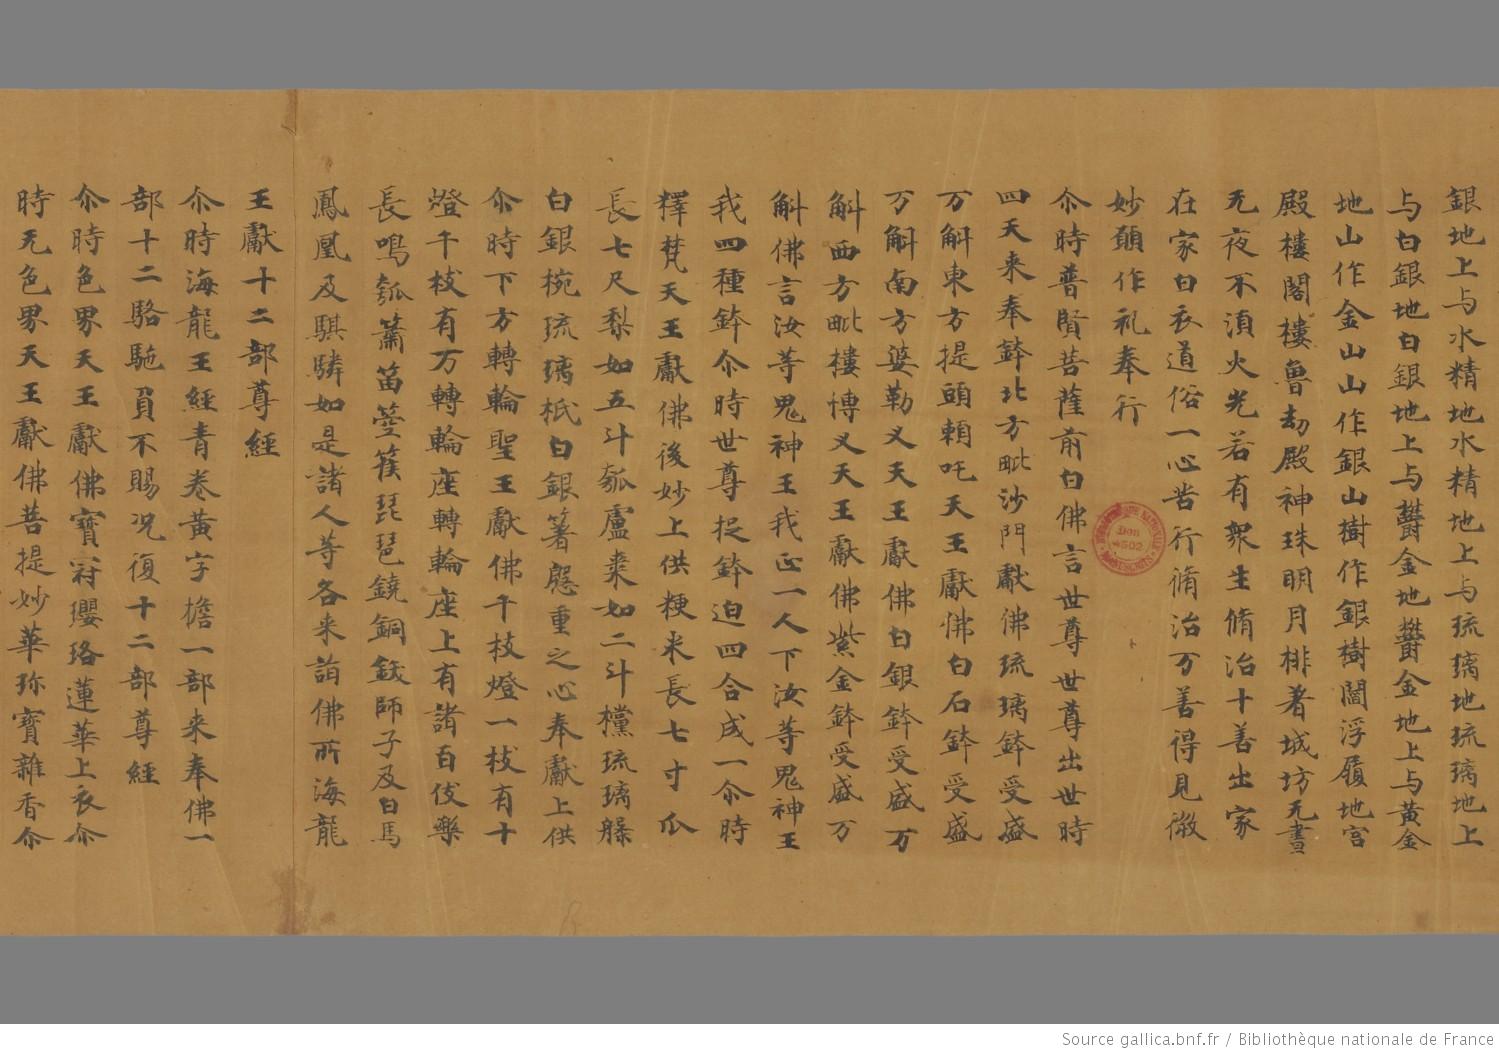 銀地上与水精地水精地上与琉璃地琉璃地上
与白銀地白銀地上与欝金地欝金地上与黄金
地山作金山山作銀山樹作銀樹閻浮履地宮
殿樓閣樓魯劫殿神珠明月棑著城坊无晝
无夜不湏火光若有衆生脩治十善出家
在家白衣道俗一心苦行脩治万善得見微
妙願作礼奉行
尒時普賢菩薩前白佛言世尊世尊出世時
四天来奉鉢北方毗沙門獻佛琉璃鉢受盛
万斛東方提頭頼吒天王獻佛白石鉢受盛
万斛南方婆勒叉天王獻佛白銀鉢受盛万
斛西方毗樓博叉天王獻佛紫金鉢受盛万
斛佛言汝等鬼神王我正一人下汝等鬼神王
我四種鉢尒時世尊捉鉢迫四合成一尒時
釋梵天王獻佛後妙上供粳米長七寸瓜
長七尺梨如五斗瓠盧棗如二斗欓琉璃牒
白銀椀琉璃柢白銀箸慇重之心奉獻上供
尒時下方轉輪聖王獻佛千枝燈一枝有十
燈千枝有万轉輪座轉輪座上有諸百伎樂
長鳴瓠簫笛箜篌琵琶鐃銅鈸師子及白馬
鳳凰及騏驎如是諸人等各来詣佛所海龍
王獻十二部尊經
尒時海龍王經青卷黄字檐一部来奉佛一
部十二駱駞負不賜况復十二部尊經
尒時色界天王獻佛寶冠瓔珞蓮華上衣尒
時无色界天王獻佛菩提妙華弥寶雜香尒
Don
4502
Source gallica.bnf.fr / Bibliothèque nationale de France